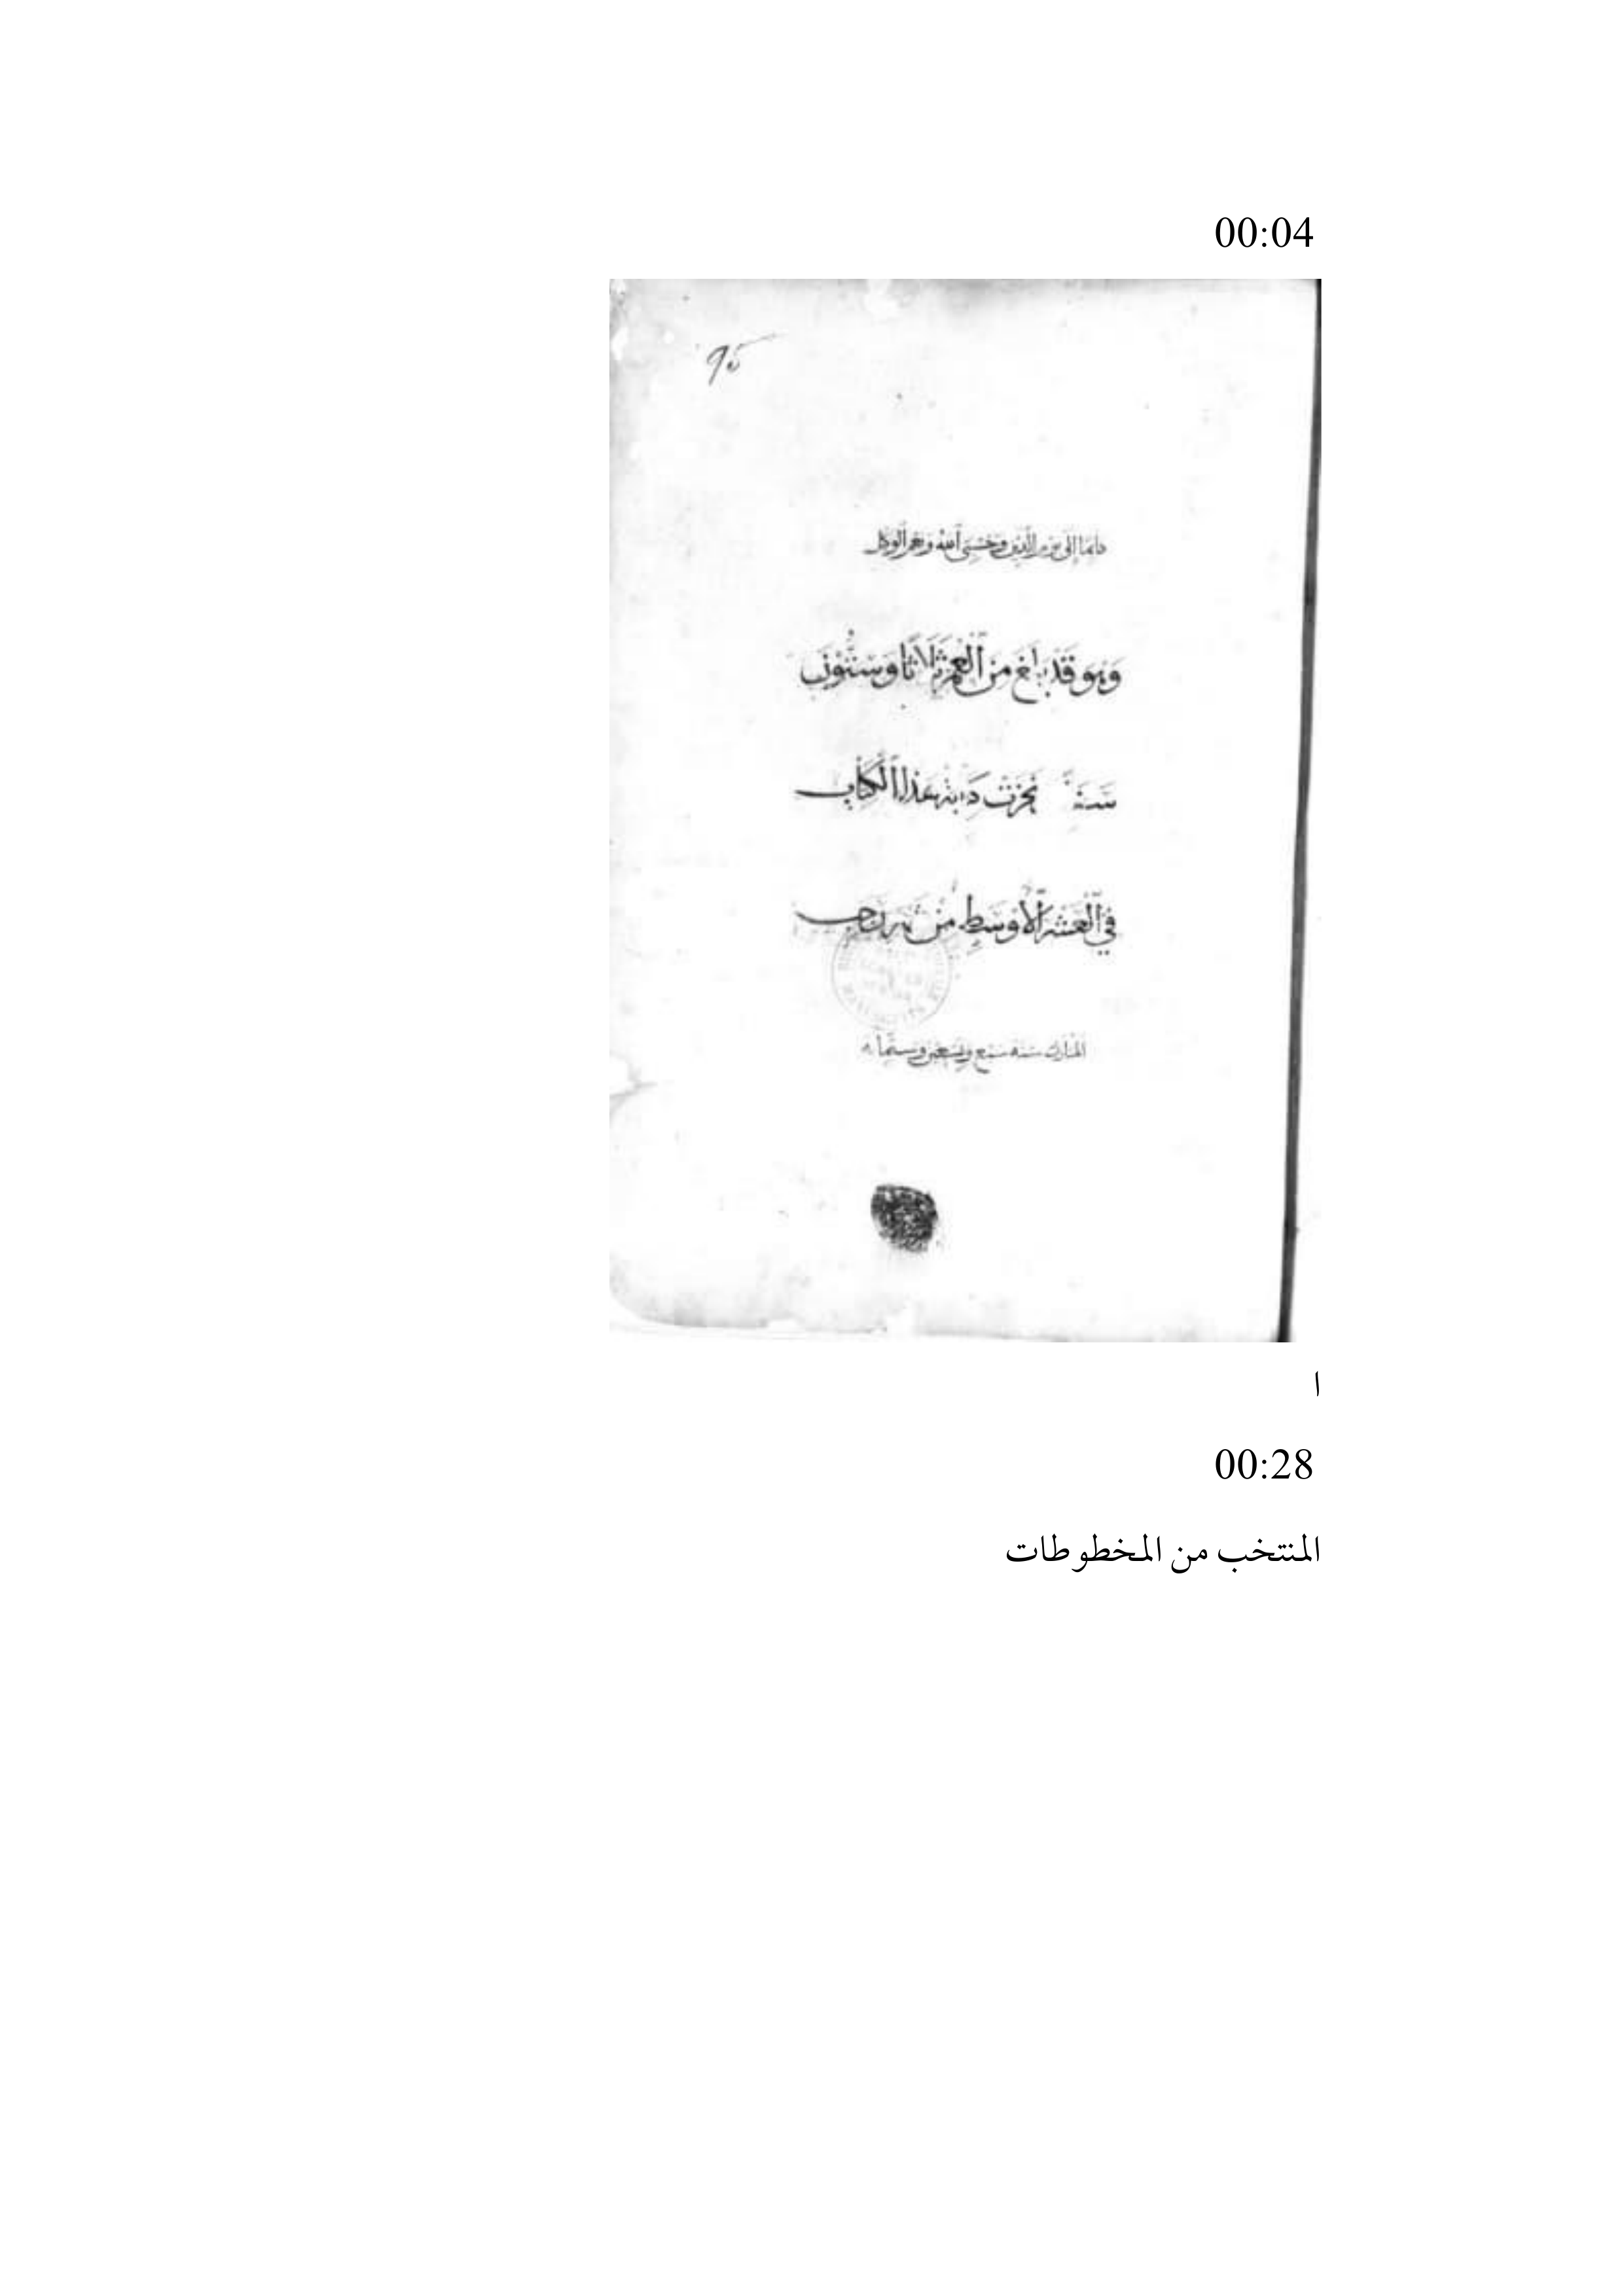 00:04
95
دايما إلى يوم الدين وحسبي الله ونعم الوكيل
وهو قد بلغ من العمر ثلاثا وستون
سنة نجزت كتابة هذا الكتاب
في العشر الأوسط من شهر رجب
المبارك سنة سبع وتسعين وستمأية
ا
00:28
المنتخب من المخطوطات